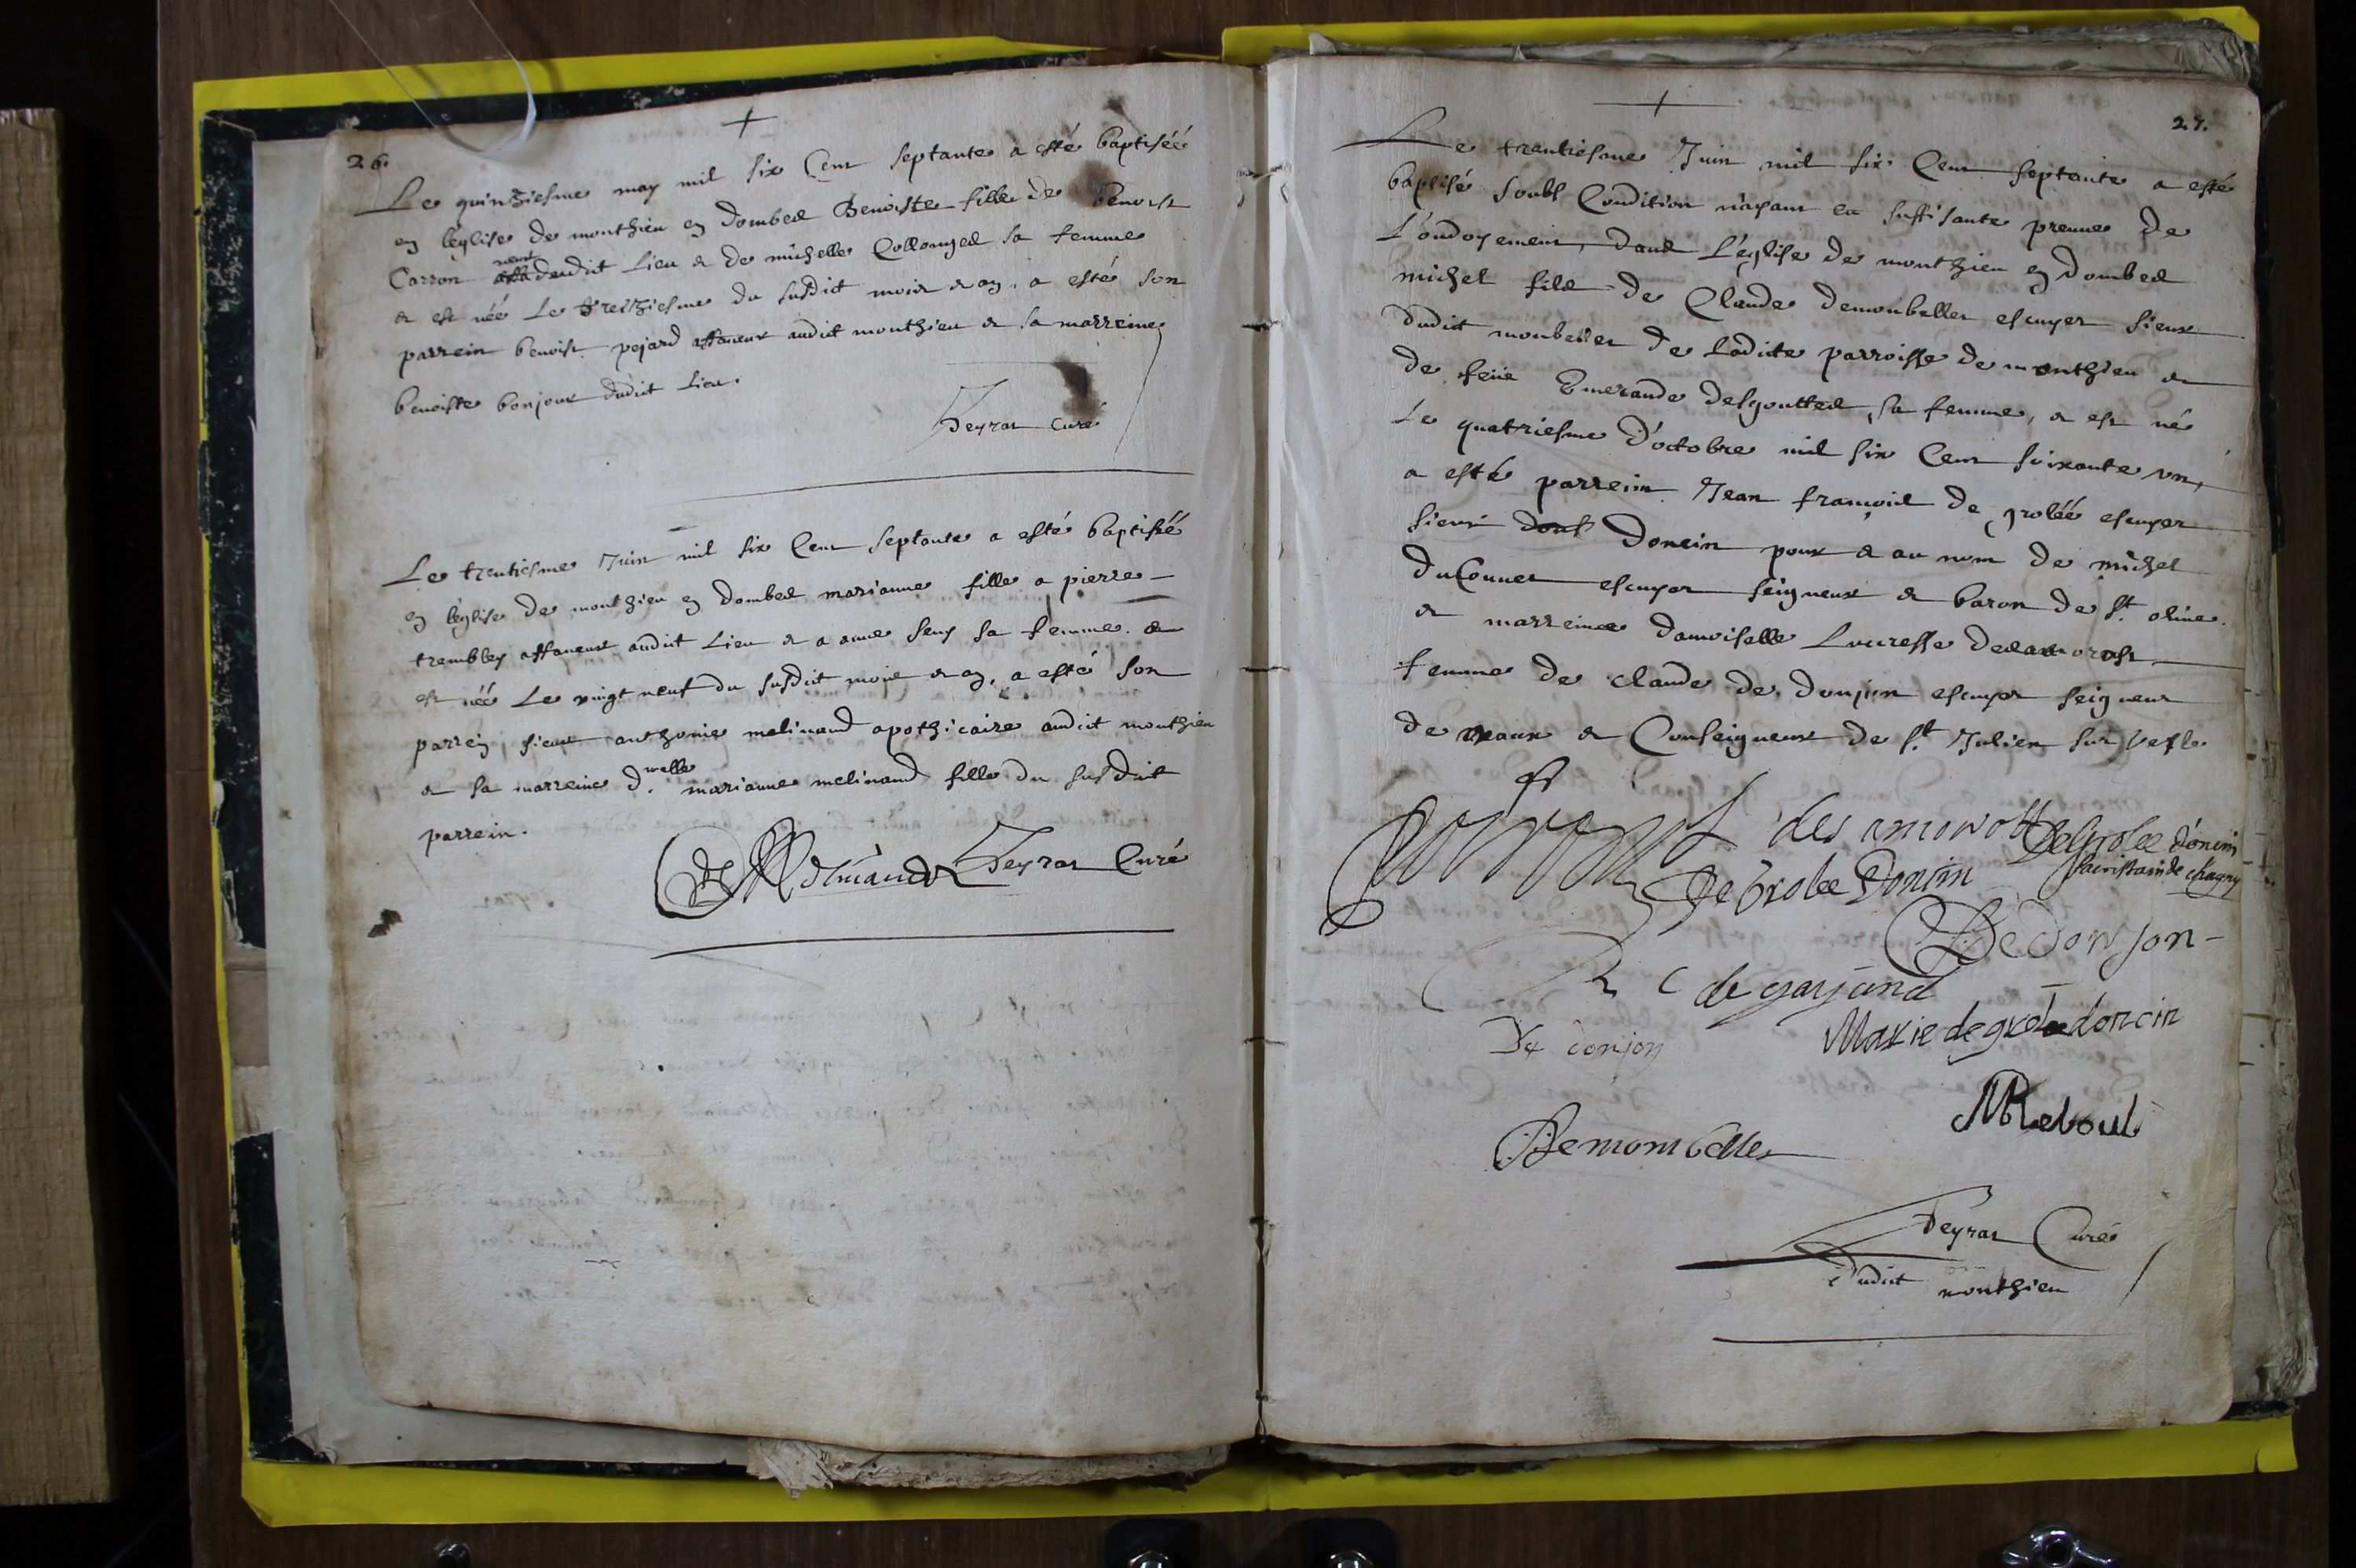 26.
Le quinziesme may mil six Cent septante a esté baptiséé
en l'eglise de monthieu en dombes Benoiste fille de benoist
Carron dudit Lieu & de michelle Collonges sa femme
& est néé Le treiziesme du susdit mois & an, a esté son
parrein benoist pejard affaneur audit monthieu & sa marreine
benoiste bonjour dudit Lieu.
Teyrat Curé
Le trentiesme Juin mil six Cent septante a esté baptiséé
en l'eglise de monthieu en dombes marianne fille a pierre
trembley affaneur audit Lieu & a anne seny sa femme &
est néé Le vingt neuf du susdit mois & an, a esté son
parrein, sieur anthonie melinand apothicaire audit monthieu
& sa marreine d.elle marianne melinand fille du susdit
parrein.
Melinand Teyrat Curé
27.
Le trantiesme Juin mil six Cent septante a esté
baptisé soubs Condition n'ayant eu suffisante preuve de
L'ondoyement, dans L'eglise de monthieu en dombes
michel fils de Claude demonbellet escuyer sieur
dudit monbellet de Ladicte parroisse de monthieu &
de feüe Emerande desgouttes, sa femme, & est né
Le quatriesme d'octobre mil six Cent soixante un,
a esté parrein Jean françois de groléé escuyer
sieur doncin pour & au nom de michel
du Connet escuyer seigneur & baron de st. oline
& marreine damoiselle Lucresse desamorost
femme de claude de donjon escuyer seigneur
de vaux & Conseigneur de st Julien sur vesle
des amorost DeGrolee doncin
De Grolee Doncin sacristain de chagny
De Donjon
de garjand
De donjon Marie de grolee doncin
MReboul
Demonbellet
Teyrat Curé
dudit monthieu